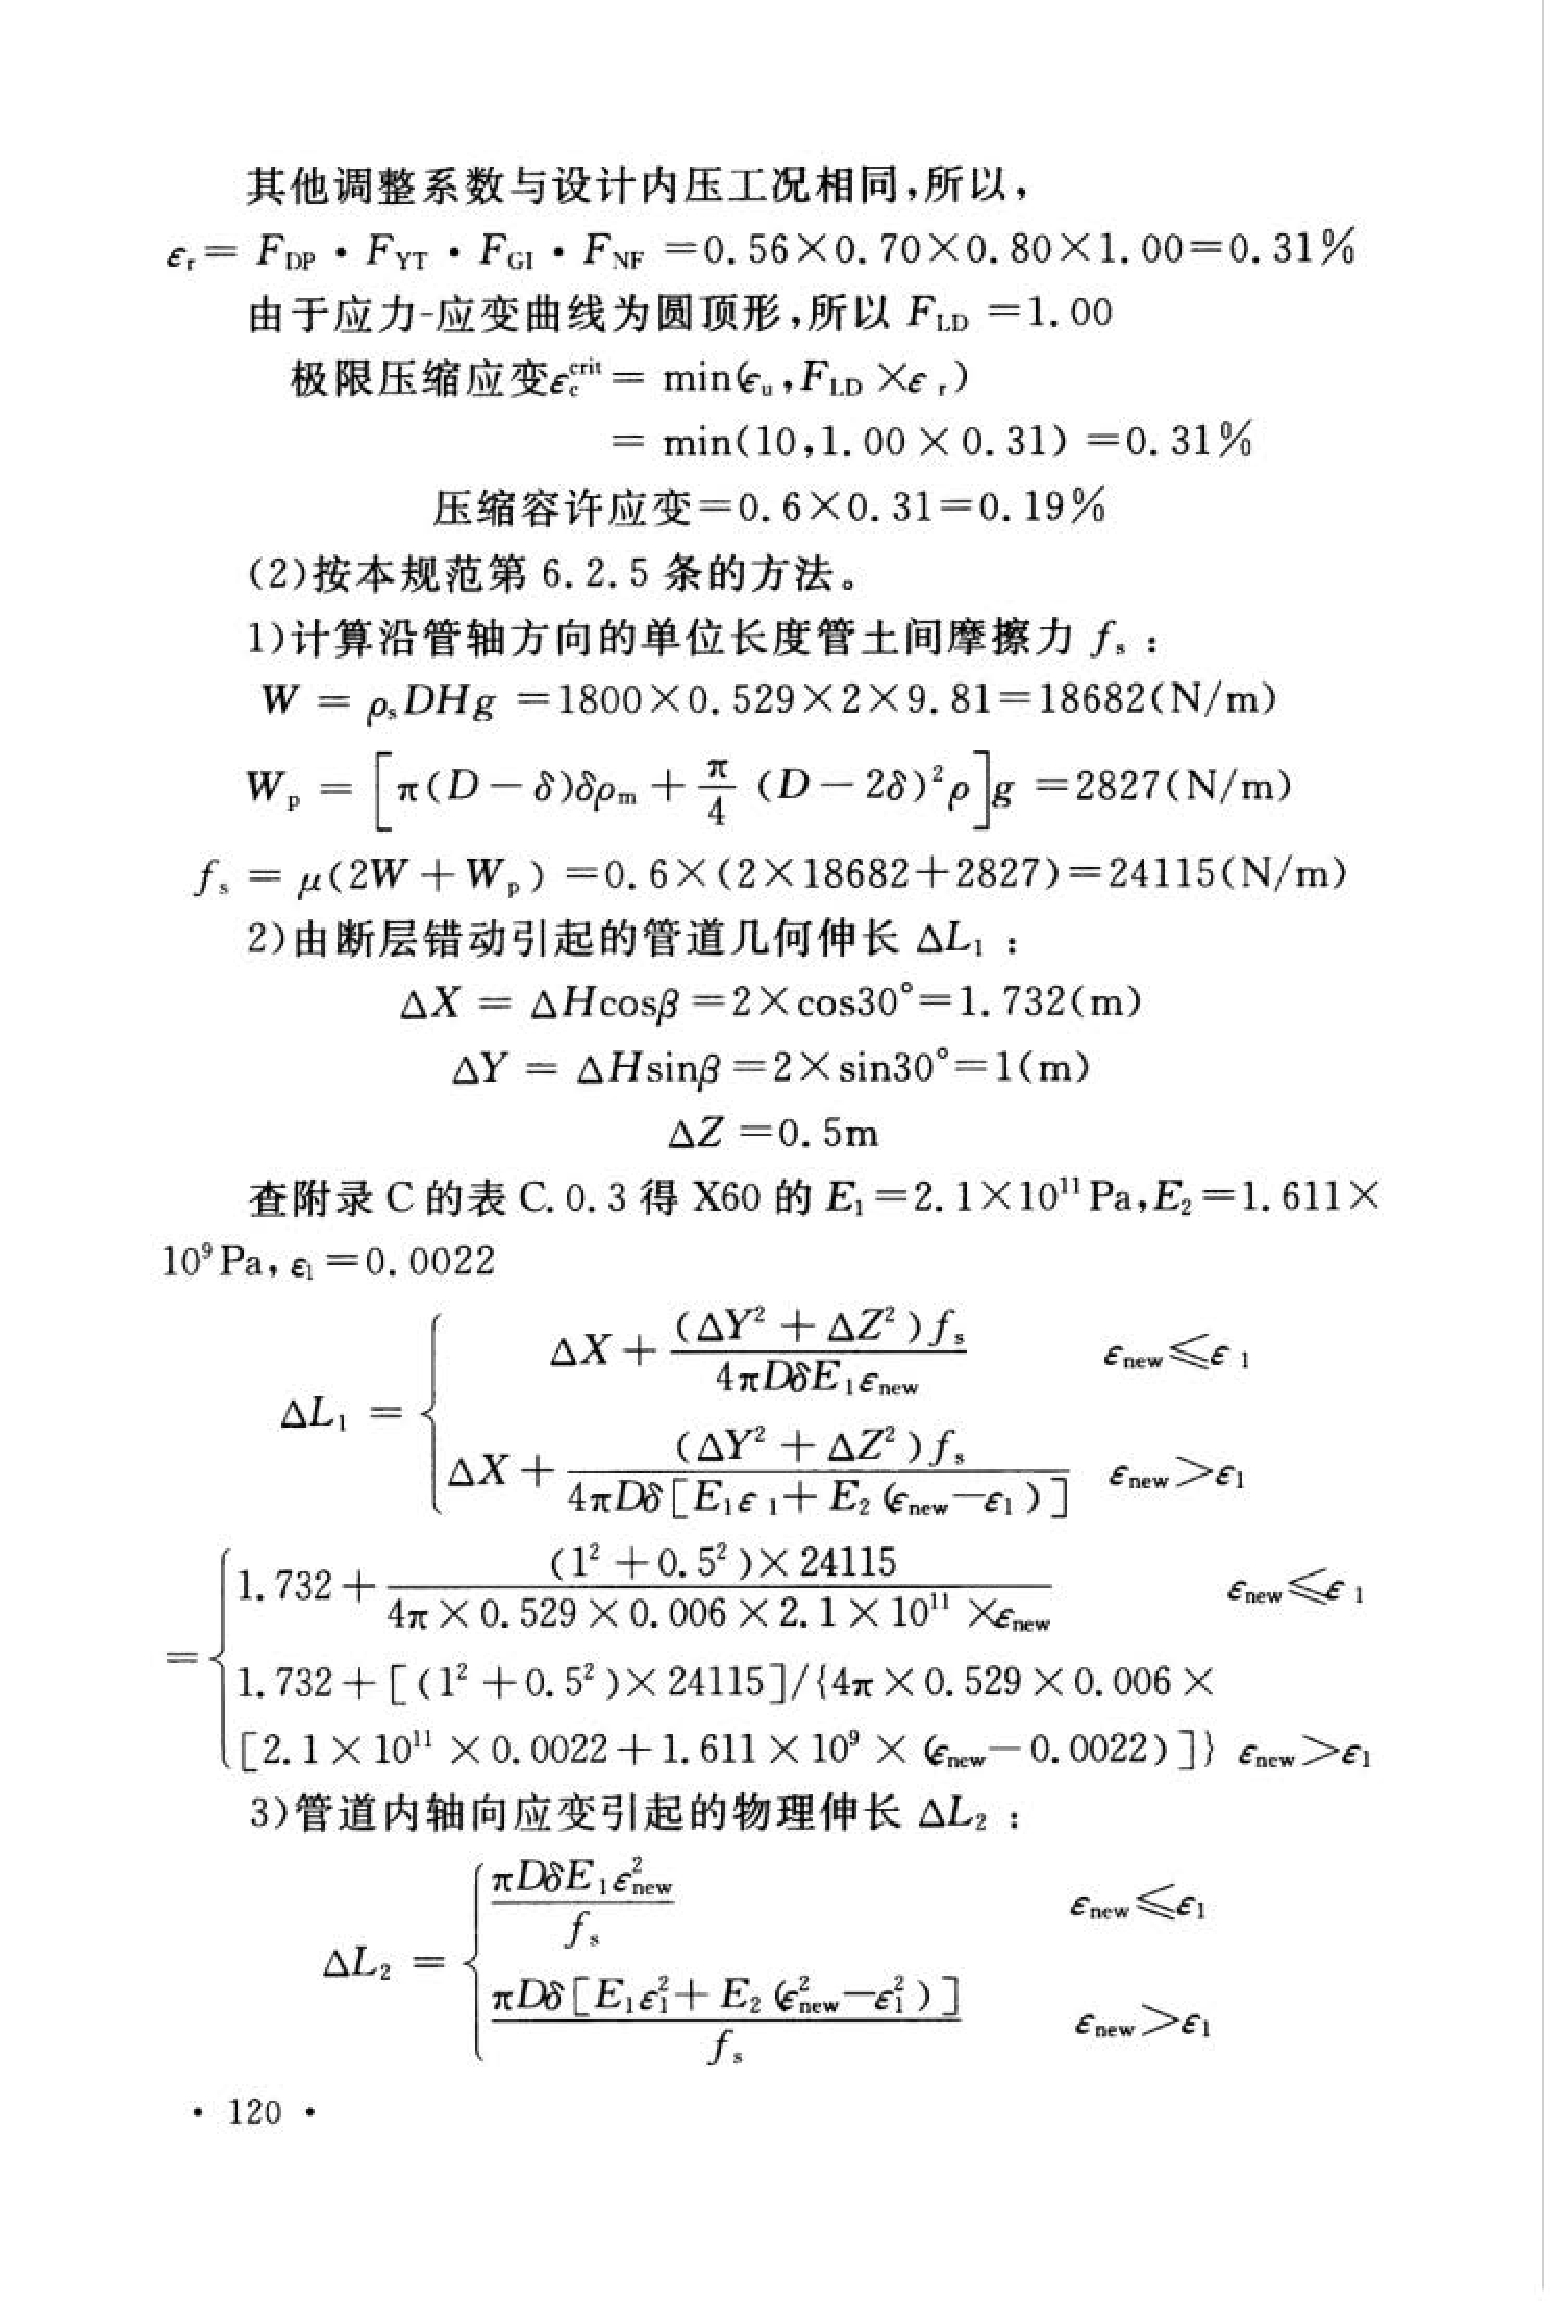 其他调整系数与设计内压工况相同,所以,
εr= FDP · FYT · FGI · FNF =0.56×0.70×0.80×1.00=0.31%
由于应力-应变曲线为圆顶形,所以 FLD =1.00
极限压缩应变εc^crit = min(εu,FLD×εr)
= min(10,1.00×0.31)=0.31%
压缩容许应变=0.6×0.31=0.19%
(2)按本规范第 6.2.5 条的方法。
1)计算沿管轴方向的单位长度管土间摩擦力 fs:
W = ρsDHg =1800×0.529×2×9.81=18682(N/m)
Wp = [π(D-δ)δρm + π/4 (D-2δ)²ρ]g =2827(N/m)
fs = μ(2W + Wp) =0.6×(2×18682+2827)=24115(N/m)
2)由断层错动引起的管道几何伸长 ΔL1:
ΔX = ΔHcosβ =2×cos30°=1.732(m)
ΔY = ΔHsinβ =2×sin30°=1(m)
ΔZ =0.5m
查附录 C 的表 C.0.3 得 X60 的 E1=2.1×10¹¹Pa,E2=1.611×
10⁹Pa,ε1=0.0022
ΔL1 = { ΔX + (ΔY²+ΔZ²)fs / 4πDδE1εnew  εnew≤ε1
ΔX + (ΔY²+ΔZ²)fs / 4πDδ[E1ε1+E2(εnew-ε1)]  εnew>ε1
= { 1.732 + (1²+0.5²)×24115 / 4π×0.529×0.006×2.1×10¹¹×εnew  εnew≤ε1
1.732+[(1²+0.5²)×24115]/{4π×0.529×0.006×
[2.1×10¹¹×0.0022+1.611×10⁹×(εnew-0.0022)]} εnew>ε1
3)管道内轴向应变引起的物理伸长 ΔL2:
ΔL2 = { πDδE1ε²new / fs  εnew≤ε1
πDδ[E1ε1²+E2(ε²new-ε1²)] / fs  εnew>ε1
· 120 ·